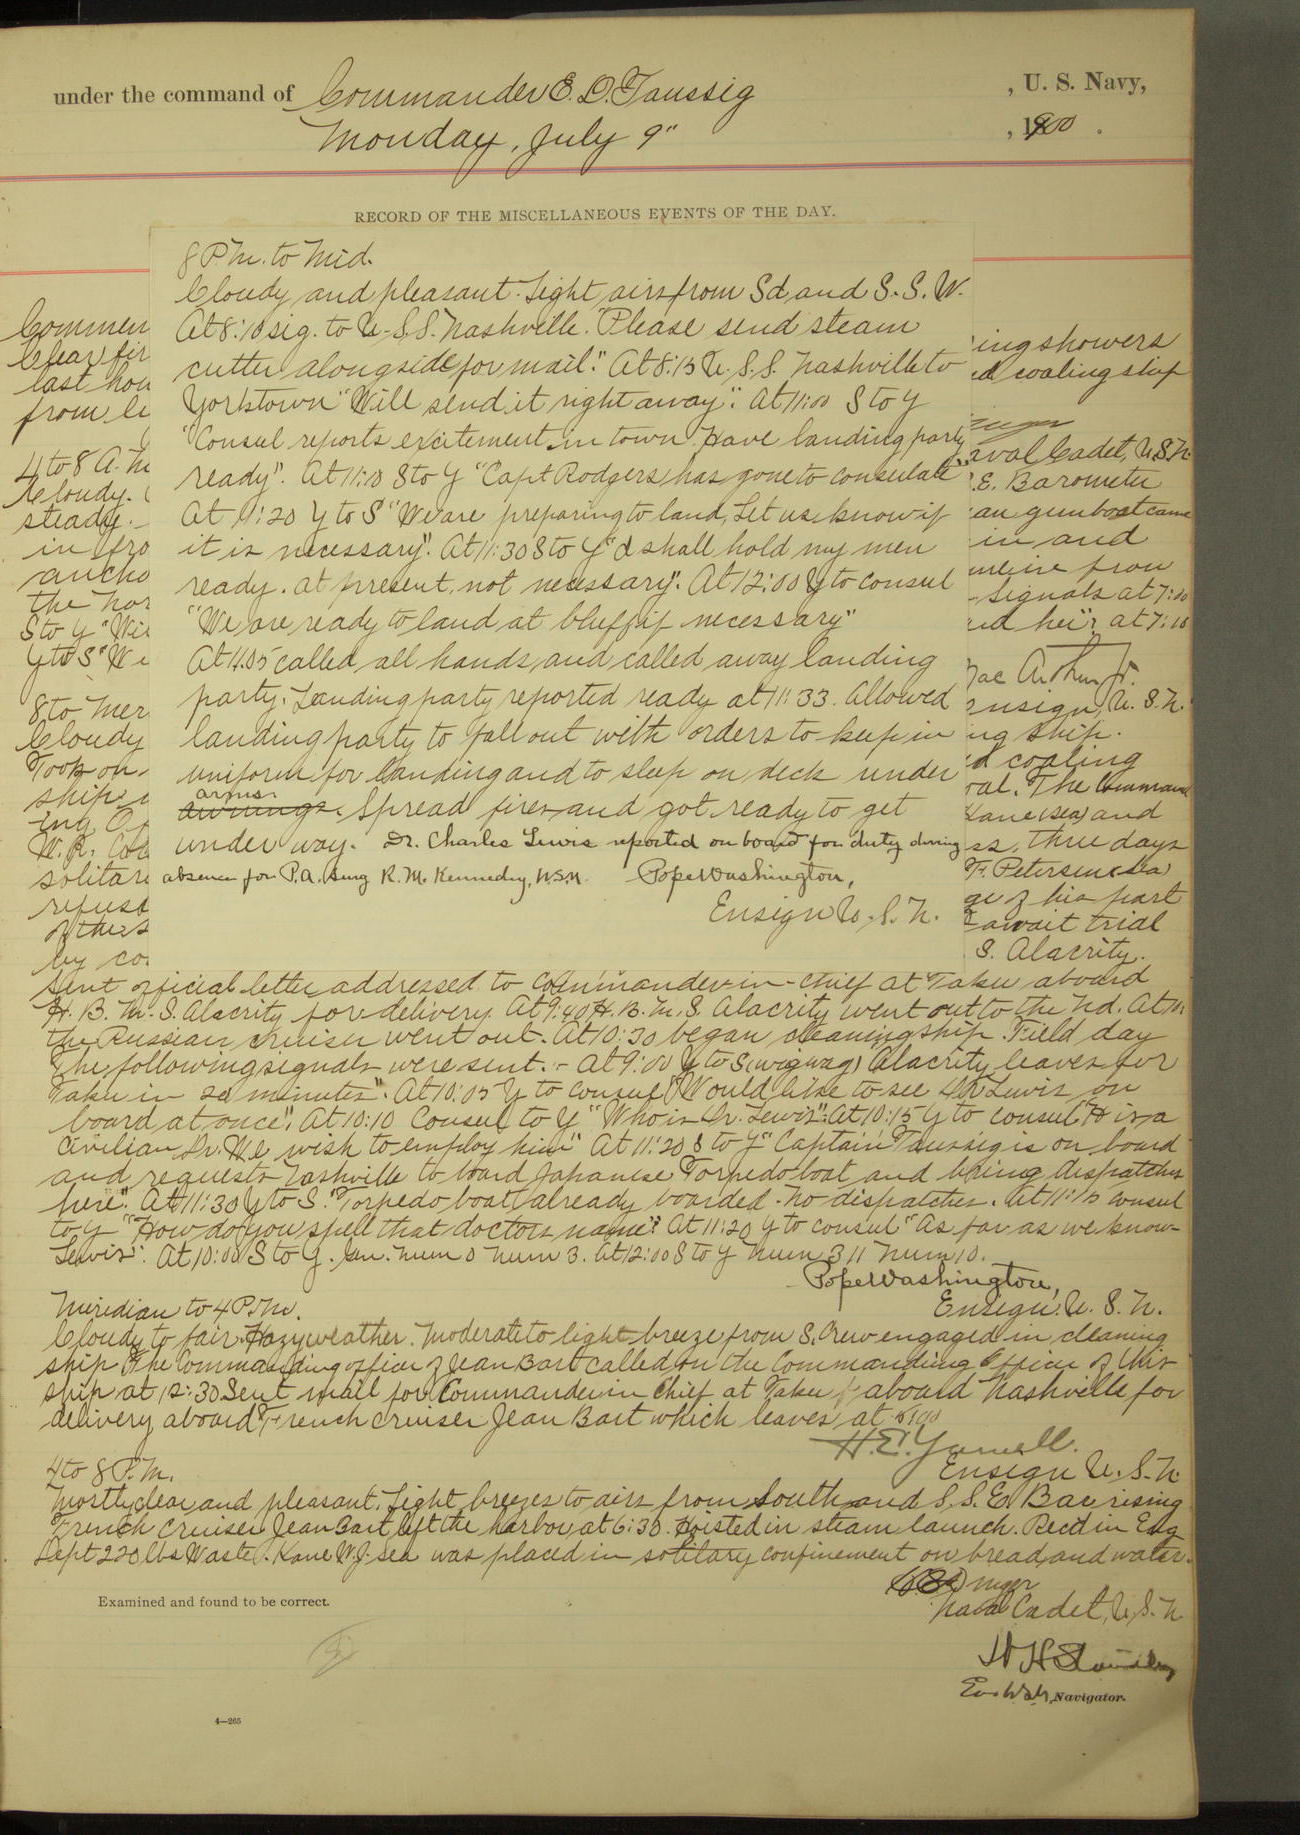 under the command of Commander E. D. Taussig , U. S. Navy,
Monday, July 9" , 1900 .
RECORD OF THE MISCELLANEOUS EVENTS OF THE DAY.
8 P.M. to Mid.
Cloudy and pleasant. Light airs from Sd and S. S. W.
At 8:10 sig. to U. S. S. Nashville. "Please send steam
cutter alongside for mail." At 8:15 U. S. S. Nashville to
Yorktown "Will send it right away". At 11:00 S to Y
"Consul reports excitement in town. Have landing party
ready". At 11:10 S to Y "Capt Rodgers has gone to consulate"
At 11:20 Y to S "We are preparing to land, Let us know if
it is necessary". At 11:30 S to Y "I shall hold my men
ready. at present, not necessary". At 12:00 Y to Consul
"We are ready to land at bluff if necessary"
At 11.05 called all hands, and called away landing
party. Landing party reported ready at 11:33. Allowed
landing party to fall out with orders to keep in
uniform for landing and to sleep on deck under
arms.
awnings. Spread fires and got ready to get
under way. Dr. Charles Lewis reported on board for duty during
absence for P.A. Surg R. M. Kennedy, U.S.N. Pope Washington,
Ensign U. S. N.
Commen
Clear
last hou
from
4 to 8 A. M
Cloudy.
steady.
in fro
ancho
the nor
S to Y "Wil
Y to S "We
8 to Mer
Cloudy
Took on
ship
ing
W. R.
solitar
refuse
of the s
by co
ing showers
ed coaling ship
nyer
aval Cadet, U.S.N.
.E. Barometer
an gunboat came
in and
from
signals at 7:00
at 7:10
ac Arthur Jr.
Ensign, U. S. N.
ng ship.
d coaling
al. The Command
Kane (sea) and
ss, three days
F. Petersen (sea)
ge of his part
await trial
S. Alacrity.
Sent official letter addressed to Commander-in-chief at Taku aboard
H. B. M. S. Alacrity for delivery. At 9.40 H. B. M. S. Alacrity went out to the Nd. At
the Russian cruiser went out. At 10:30 began cleaning ship. Field day
The following signals were sent. - At 9:00 Y to S (wigwag) "Alacrity leaves for
Taku in 20 minutes". At 10:05 Y to Consul "Would like to see Dr Lewis on
board at once". At 10:10 Consul to Y "Who is Dr. Lewis". At 10:15 Y to consul "He is a
Civilian Dr. We wish to employ him" At 11:20 S to Y "Captain Taussig is on board
and requests Nashville to board Japanese Torpedo boat and bring dispatches
here". At 11:30 Y to S. "Torpedo boat already boarded. No dispatches. At 11:15 consul
to Y "How do you spell that doctors name? At 11:20 Y to consul "As far as we know
Lewis". At 10:00 S to Y. Num 0 Num 3. At 12:00 S to Y Num 311 Num 10.
Pope Washington,
Ensign U. S. N.
Meridian to 4 P.M.
Cloudy to fair. Hazy weather. Moderate to light breeze from S. Crew engaged in cleaning
ship. The Commanding officer of Jean Bart called on the Commanding Officer of this
ship at 12:30 Sent mail for Commander in Chief at Taku aboard Nashville for
delivery aboard French cruiser Jean Bart which leaves at
H. E. Yarnell.
Ensign U. S. N.
4 to 8 P. M.
Mostly clear and pleasant. Light breezes to airs from South and S. S. E. Bar rising
French Cruiser Jean Bart left the harbor at 6:30. Hoisted in steam launch. Rec'd in Eng
Dept. 220 lbs Waste. Kane W. J. sea was placed in solitary confinement on bread and water.
nyer
Naval Cadet, U. S. N.
Examined and found to be correct.
W H Standley
Navigator.
4—265